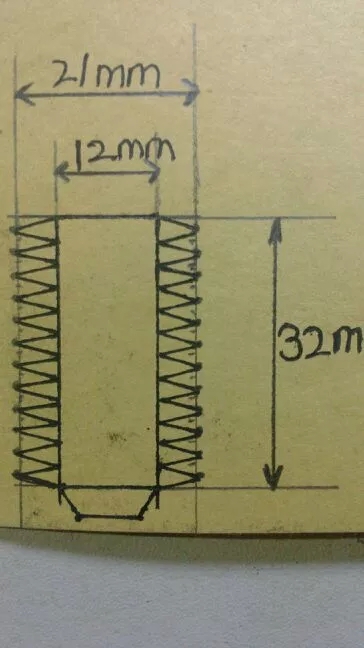 21mm
12mm
32m